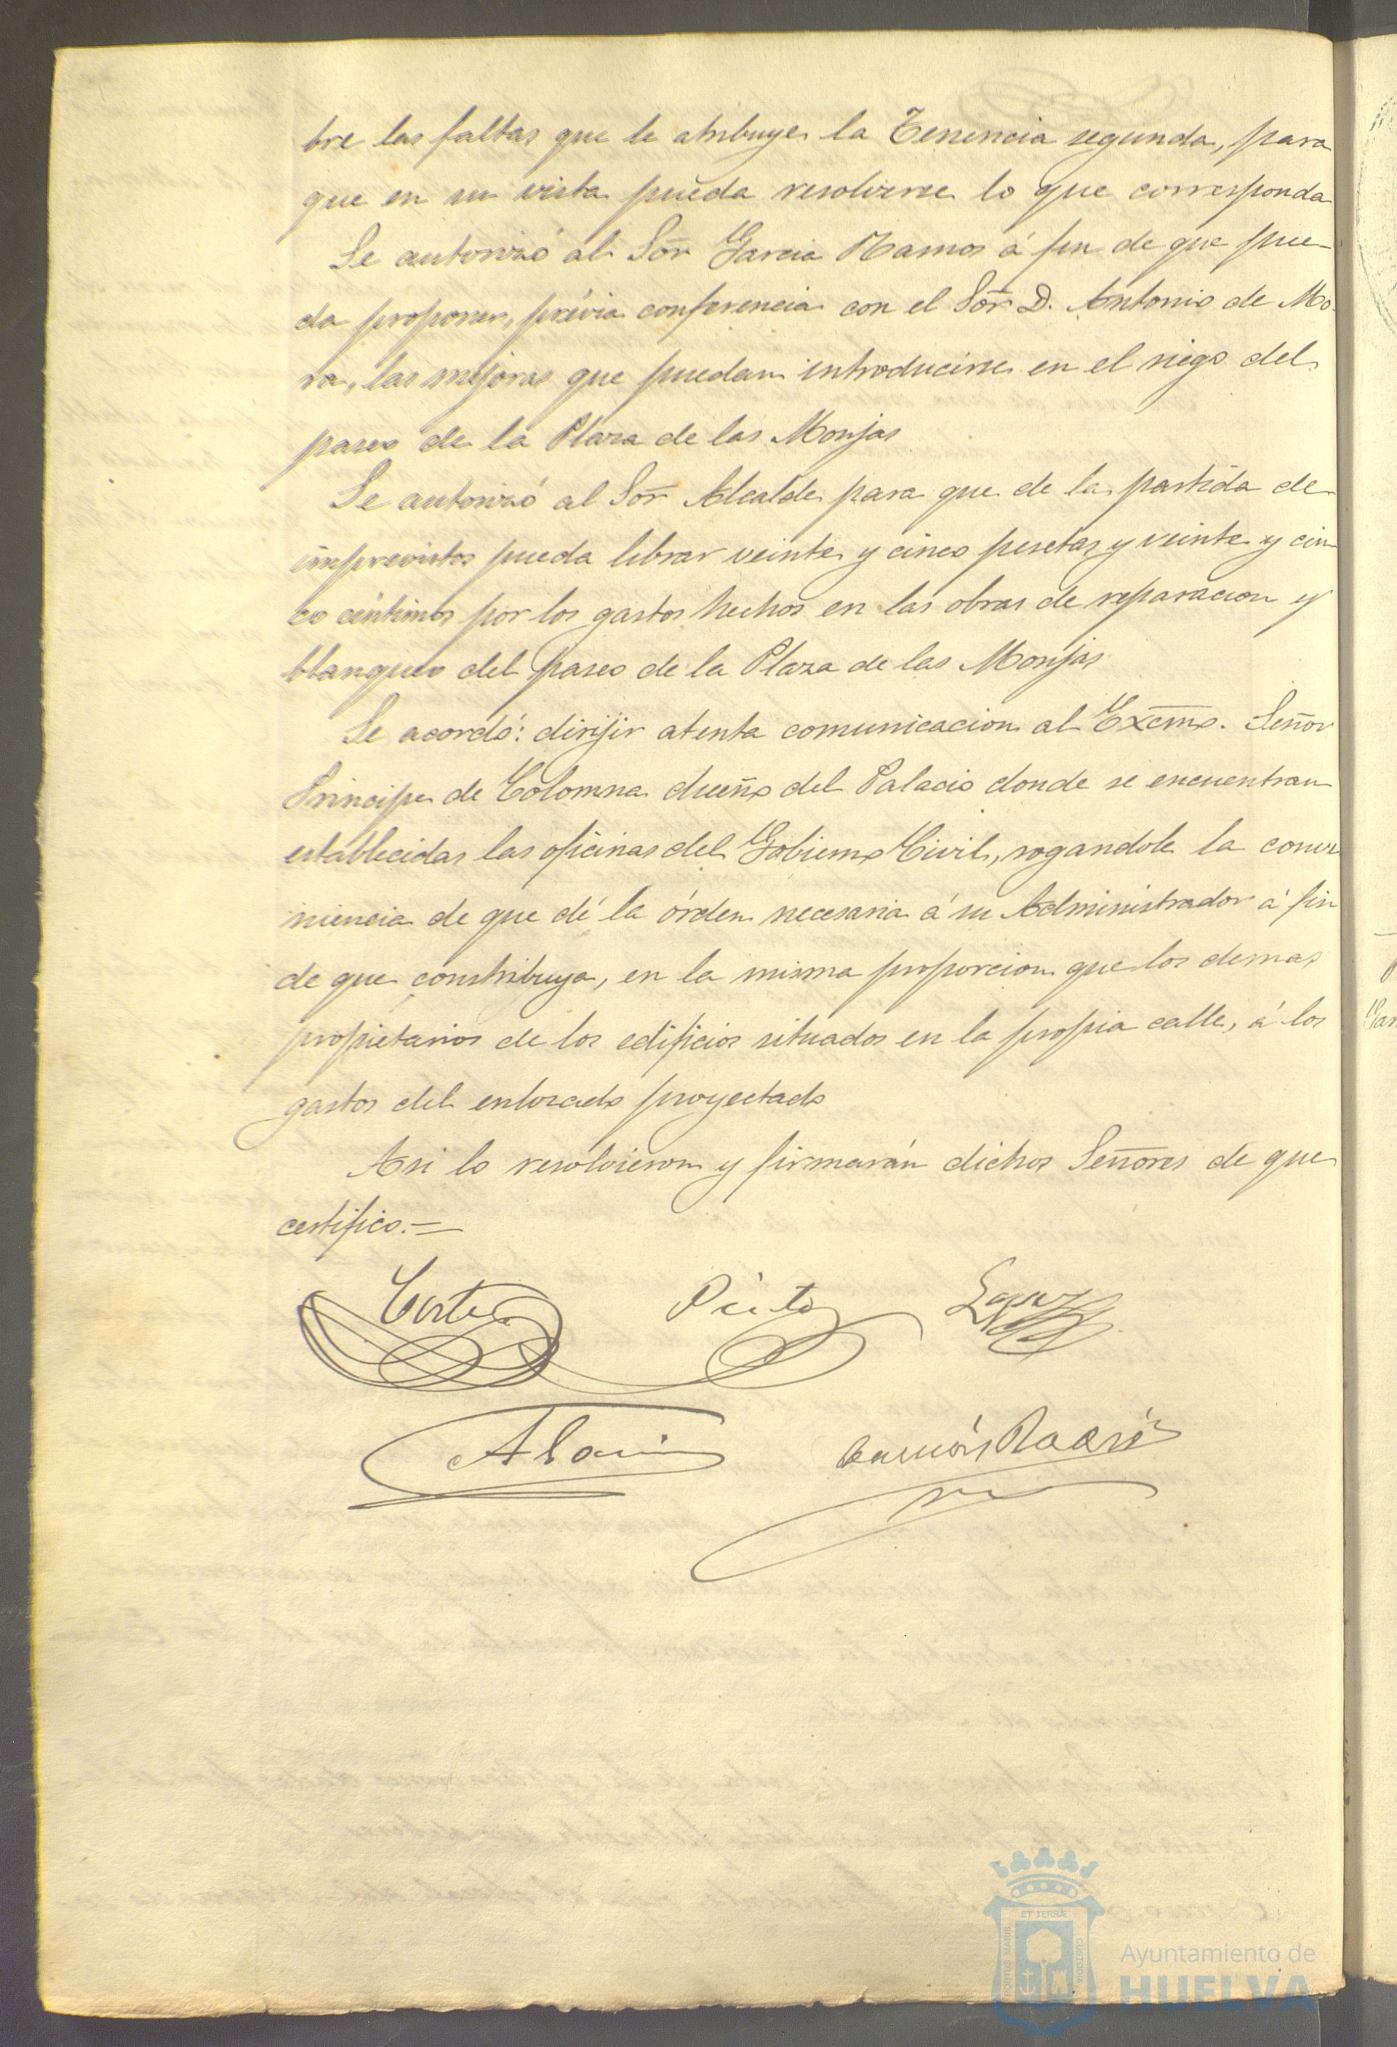 bre las faltas que le atribuye la Tenencia segunda, para
que en su vista pueda resolverse lo que corresponda
Se autorizó al Sor Garcia Ramos á fin de que pue-
da proponer, prévia conferencia con el Sor D. Antonio de Mo-
ra, las mejoras que puedan introducirse en el riego del
paseo de la Plaza de las Monjas
Se autorizó al Sor Alcalde para que de la partida de
imprevistos pueda librar veinte y cinco pesetas y veinte y cin
co céntimos por los gastos hechos en las obras de reparacion y
blanqueo del paseo de la Plaza de las Monjas
Se acordó: dirijir atenta comunicacion al Excmo. Señor
Principe de Colomna dueño del Palacio donde se encuentran
establecidas las oficinas del Gobierno Civil, rogandole la conve
niencia de que dé la órden necesaria á su Administrador á fin
de que contribuya, en la misma proporcion que los demas
propietarios de los edificios situados en la propia calle, á los
gastos del enlosado proyectado
Asi lo resolvieron y firmarán dichos Señores de que
certifico.=
Cortes Pinto
Garcia Ramos
ET TERRAE
CUSTODIA
PORTUS MARIS
Ayuntamiento de
HUELVA